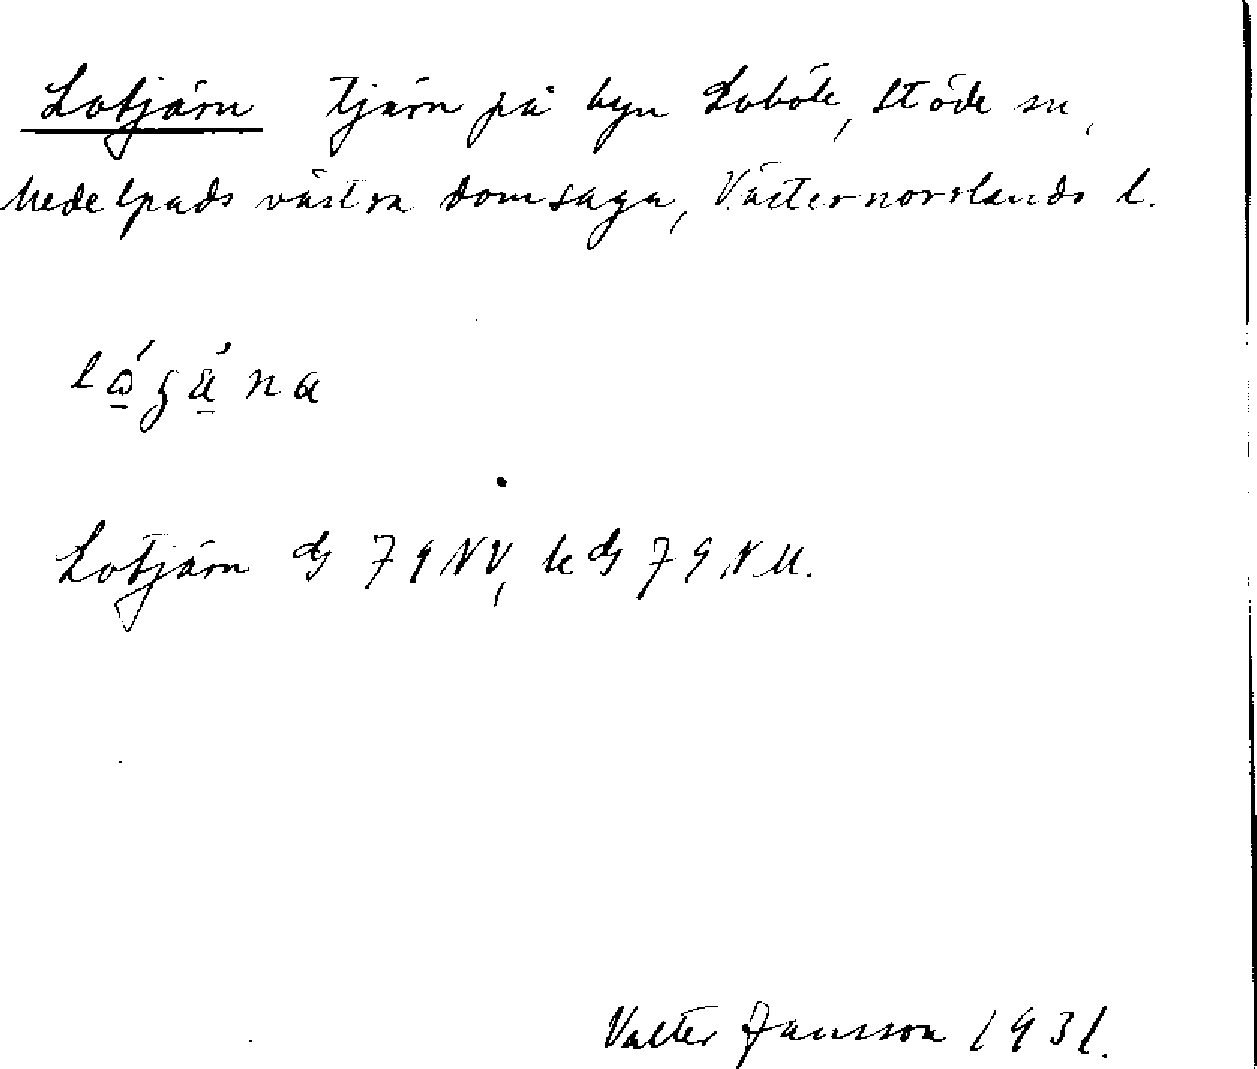 Lotjärn Tjärn på byn Loböle, Stöde sn,
Medelpads västra domsaga, Västernorrlands l.
Lotjärn ds 79 NV, ks ds 79 NU.
Valter Jansson 1931.